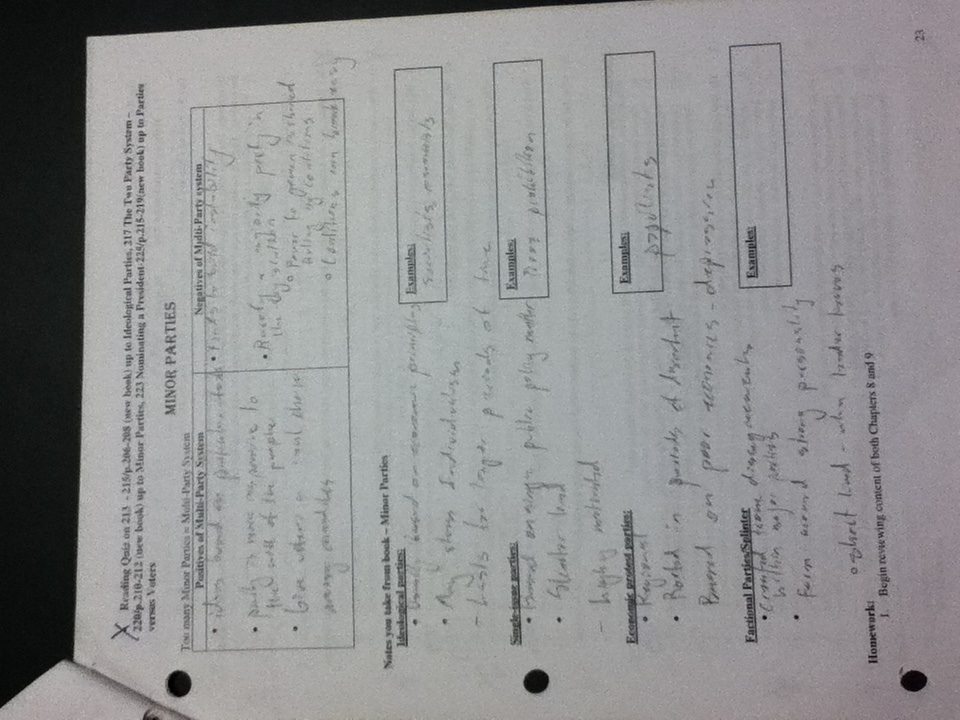 X Reading Quiz on 213 - 215/p.206-208 (new book) up to Ideological Parties, 217 The Two Party System –
220/p.210-212 (new book) up to Minor Parties, 223 Nominating a President-225/p.215-219(new book) up to Parties
versus Voters
MINOR PARTIES
Too many Minor Parties = Multi-Party System
Positives of Multi-Party System
• ideas based on particular
• party is more responsive to
the will of the people
• Give voters a
among
Negatives of Multi-Party system
• tends to instability
• Rarely a majority party in
the
o Power to
by
o can break easy
Notes you take from book – Minor Parties
Ideological parties:
• Usually based on economic
• Any Individualism
- Lasts for longer periods of time
Examples:
Single-issue parties:
• Based on single public policy matter
• lived
- highly motivated
Examples:
prohibition
Economic protest parties:
• Regional
• Rooted in periods of discontent
Based on poor economics - depression
Examples:
populists
Factional Parties/Splinter
• Created from disagreements
within major parties
• Form around strong personality
o short lived - when leader leaves
Examples:
Homework:
1. Begin reviewing content of both Chapters 8 and 9
23